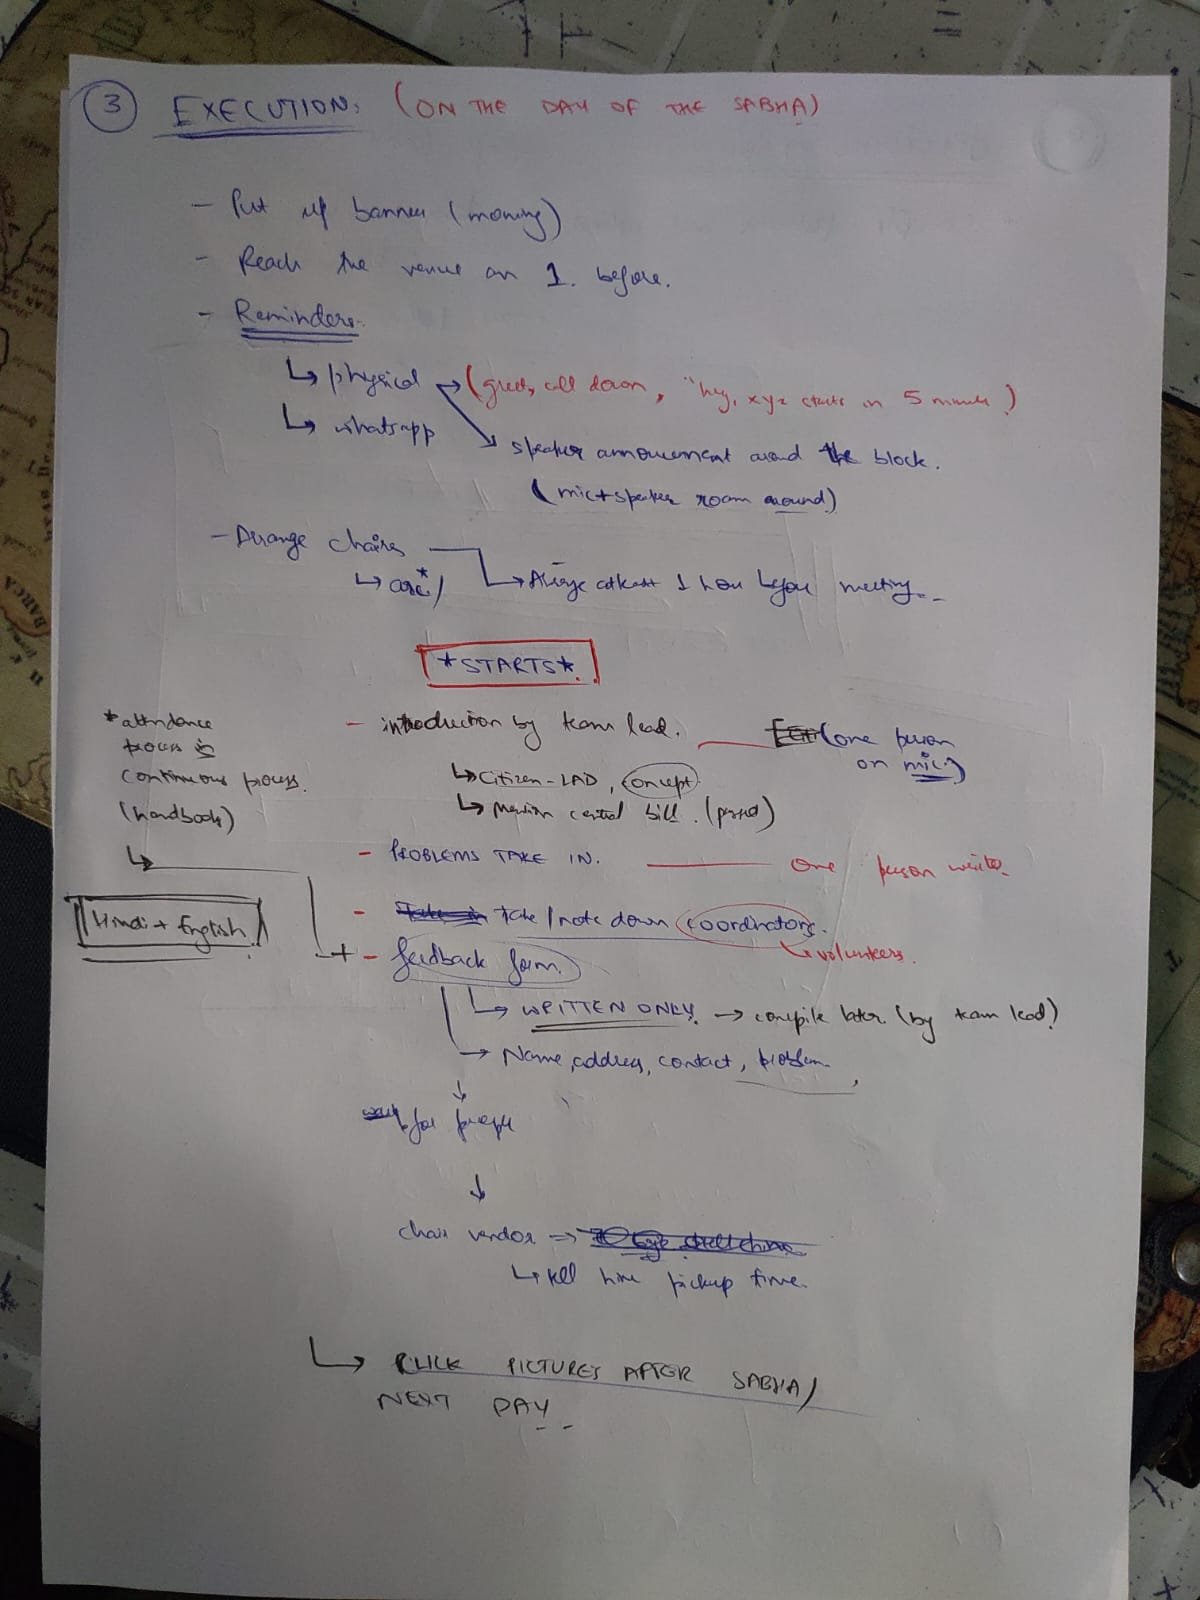 ③ EXECUTION: (ON THE DAY OF THE SABHA)
- Put up banner (morning)
- Reach the venue an 1. before.
- Reminders.
↳ physical → (greet, call down, "hey, xyz starts in 5 minute")
↳ whatsapp
↘ speaker announcement around the block.
(mic+speaker room around)
- Arrange chairs
↳ Arrange atleast 1 hour before meeting.
*STARTS*
- introduction by team lead. (one person
on mic)
↳ Citizen-LAD, concept
↳ Mention central bill.
* attendance
process is
continuous process.
(handbook)
↳
- PROBLEMS TAKE IN. one person write.
Hindi + English
- Take/note down coordinators.
↳ volunteers.
+ - feedback form.
↳ WRITTEN ONLY. → compile later (by team lead)
→ Name, address, contact, problem
↓
for people
↓
chair vendor ⇒
↳ tell him pickup time.
↳ CLICK PICTURES AFTER SABHA/
NEXT DAY